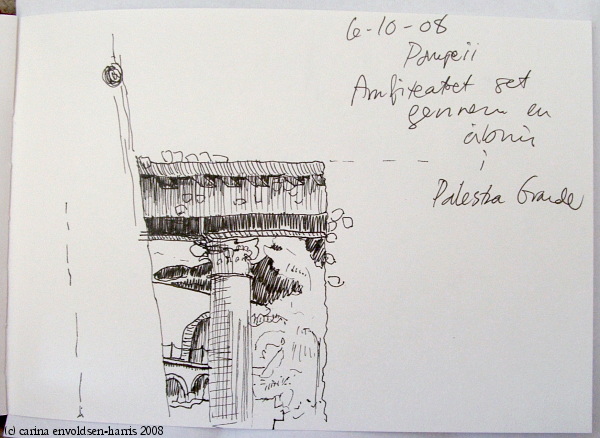 6-10-08
Pompeii
Amfiteatret set
gennem en
åbning
i
Palestra Grande
(c) carina envoldsen-harris 2008